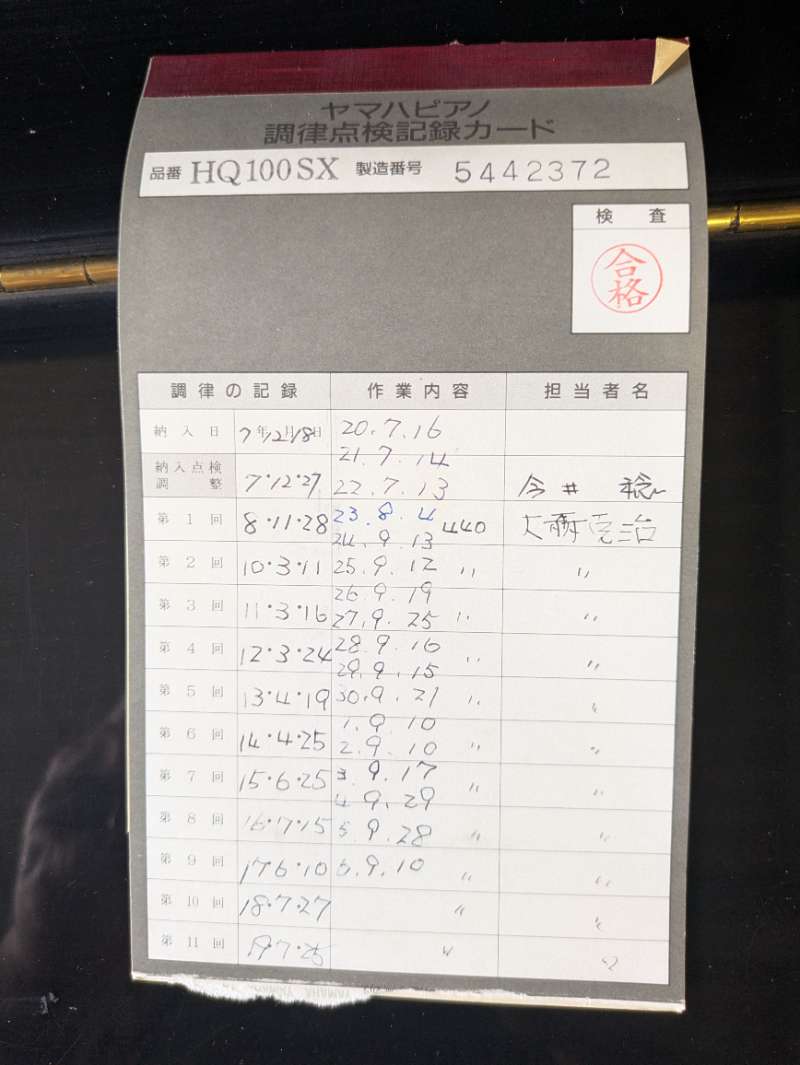 ヤマハピアノ
調律点検記録カード
品番 HQ100SX 製造番号 5442372
検査
合格
調律の記録 作業内容 担当者名
納入日 7年12月18日 20.7.16
21.7.14
納入点検調整 7・12・27 22.7.13 今井
第1回 8・11・28 23.8.4 440
24.9.13
第2回 10・3・11 25.9.12 〃 〃
26.9.19
第3回 11・3・16 27.9.25 〃 〃
28.9.16
第4回 12・3・24 〃 〃
29.9.15
第5回 13・4・19 30.9.21 〃 〃
1.9.10
第6回 14・4・25 2.9.10 〃 〃
第7回 15・6・25 3.9.17 〃 〃
4.9.29
第8回 16・7・15 5.9.28 〃 〃
第9回 17 6・10 6.9.10 〃 〃
第10回 18・7・27 〃 〃
第11回 19・7・25 〃 〃